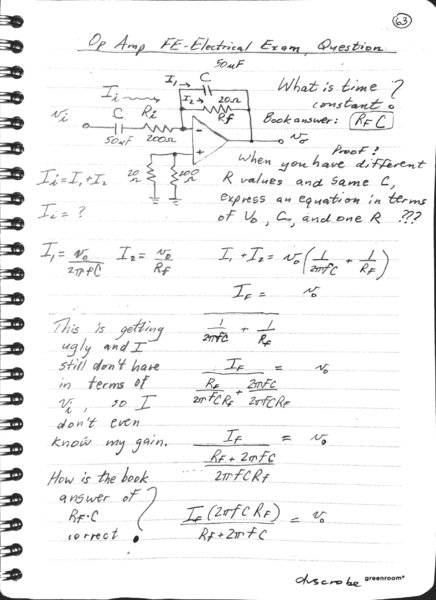 63
Op Amp FE-Electrical Exam Question
50μF
I₁ → C
I₂ → 20Ω
Rf
What is time constant?
Book answer: RF C
Ii → C Ri
vi
50μF 200Ω
- +
vo
20Ω 200Ω
Proof?
When you have different
R values and same C,
express an equation in terms
of Vo, C, and one R ???
Ii = I₁ + I₂
Ii = ?
I₁ = vo / 2πfC I₂ = vo / Rf I₁ + I₂ = vo (1/2πfC + 1/RF)
IF = vo
1/2πfC + 1/RF
This is getting
ugly and I
still don't have
in terms of
vi, so I
don't even
know my gain.
IF = vo
RF/2πfCRF + 2πfC/2πfCRF
IF = vo
RF + 2πfC
2πfCRF
How is the book
answer of
RF·C
correct?
IF (2πfCRF) / RF + 2πfC = vo
greenroom